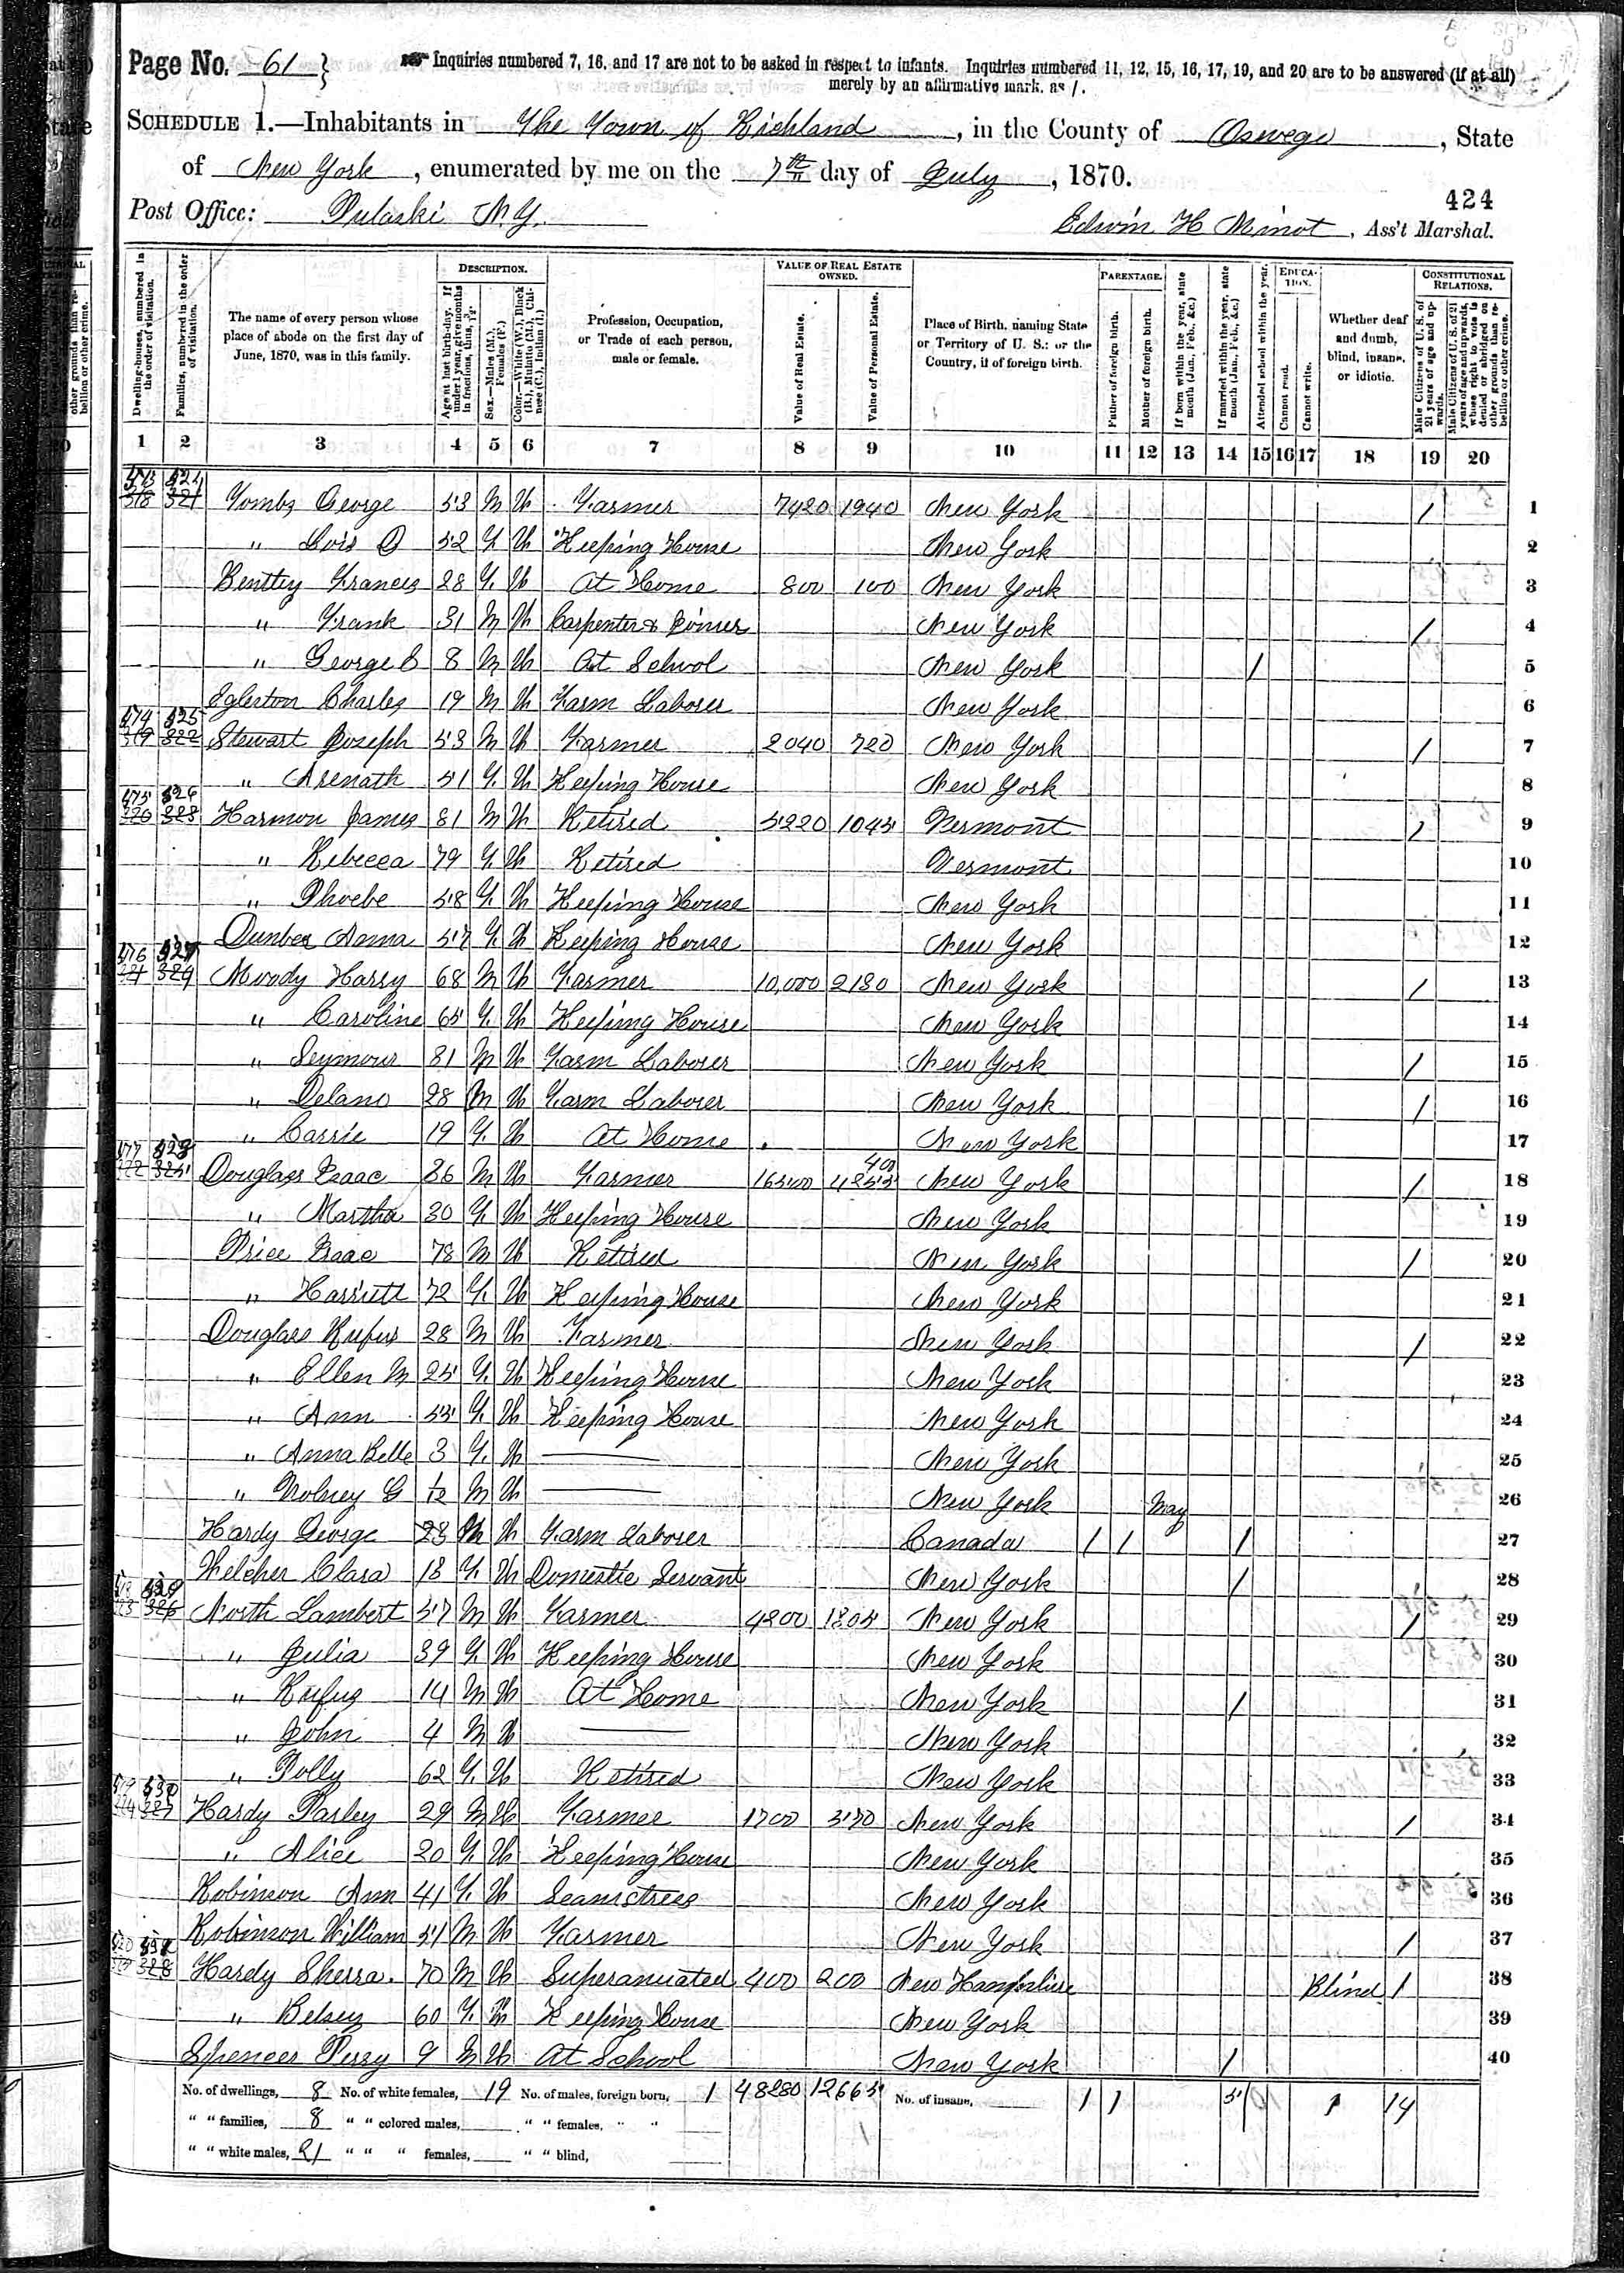 Page No. 61 } Inquiries numbered 7, 16, and 17 are not to be asked in respect to infants. Inquiries numbered 11, 12, 15, 16, 17, 19, and 20 are to be answered (if at all)
merely by an affirmative mark, as /.
SCHEDULE 1.—Inhabitants in The Town of Richland, in the County of Oswego, State
of New York, enumerated by me on the 7th day of July, 1870.
424
Post Office: Pulaski N.Y. Edwin H Minot, Ass't Marshal.
Dwelling-houses, numbered in the order of visitation.
Families, numbered in the order of visitation.
The name of every person whose place of abode on the first day of June, 1870, was in this family.
DESCRIPTION.
Age at last birth-day. If under 1 year, give months in fractions, thus, 3/12.
Sex.—Males (M.), Females (F.)
Color.—White (W.), Black (B.), Mulatto (M.), Chinese (C.), Indian (I.)
Profession, Occupation, or Trade of each person, male or female.
VALUE OF REAL ESTATE OWNED.
Value of Real Estate.
Value of Personal Estate.
Place of Birth, naming State or Territory of U. S.; or the Country, if of foreign birth.
PARENTAGE.
Father of foreign birth.
Mother of foreign birth.
If born within the year, state month (Jan., Feb., &c.)
If married within the year, state month (Jan., Feb., &c.)
Attended school within the year.
EDUCATION.
Cannot read.
Cannot write.
Whether deaf and dumb, blind, insane, or idiotic.
CONSTITUTIONAL RELATIONS.
Male Citizens of U. S. of 21 years of age and upwards.
Male Citizens of U. S. of 21 years of age and upwards, whose right to vote is denied or abridged on other grounds than rebellion or other crime.
1 2 3 4 5 6 7 8 9 10 11 12 13 14 15 16 17 18 19 20
Tombs George 53 M W Farmer 7420 1940 New York / 1
" Lois 52 F W Keeping House New York 2
Bentley Frances 28 F W At Home 800 100 New York 3
" Frank 31 M W Carpenter & Joiner New York / 4
" George C 8 M W At School New York / 5
Egleston Charles 19 M W Farm Laborer New York 6
Stewart Joseph 53 M W Farmer 2040 720 New York / 7
" Asenath 51 F W Keeping House New York 8
Harmon James 81 M W Retired 5220 1045 Vermont / 9
" Rebecca 79 F W Retired Vermont 10
" Phoebe 58 F W Keeping House New York 11
Dunbar Anna 57 F W Keeping House New York 12
Moody Harry 68 M W Farmer 10,000 2180 New York / 13
" Caroline 65 F W Keeping House New York 14
" Seymour 31 M W Farm Laborer New York / 15
" Delano 28 M W Farm Laborer New York / 16
" Carrie 19 F W At Home New York 17
Douglass Isaac 36 M W Farmer 16500 New York / 18
" Martha 30 F W Keeping House New York 19
Price Isaac 78 M W Retired New York / 20
" Harriett 72 F W Keeping House New York 21
Douglass Rufus 28 M W Farmer New York / 22
" Ellen M 25 F W Keeping House New York 23
" Ann 55 F W Keeping House New York 24
" Anna Belle 3 F W New York 25
" Volney G 1/12 M W New York May 26
Hardy George 23 M W Farm Laborer Canada / / / 27
Welcher Clara 18 F W Domestic Servant New York / 28
North Lambert 57 M W Farmer 4200 1805 New York / 29
" Julia 39 F W Keeping House New York 30
" Rufus 14 M W At Home New York / 31
" John 4 M W New York 32
" Polly 62 F W Retired New York 33
Hardy Parley 29 M W Farmer 1700 570 New York / 34
" Alice 20 F W Keeping House New York 35
Robinson Ann 41 F W Seamstress New York 36
Robinson William 51 M W Farmer New York / 37
Hardy Sherra 70 M W Superanuated 400 200 New Hampshire Blind / 38
" Betsey 60 F W Keeping House New York 39
Spencer Perry 9 M W At School New York / 40
No. of dwellings, 8 No. of white females, 19 No. of males, foreign born, 1 48280 12665 No. of insane, 1 1 5 1 14
" " families, 8 " " colored males, " " females, " "
" " white males, 21 " " " females, " " blind,